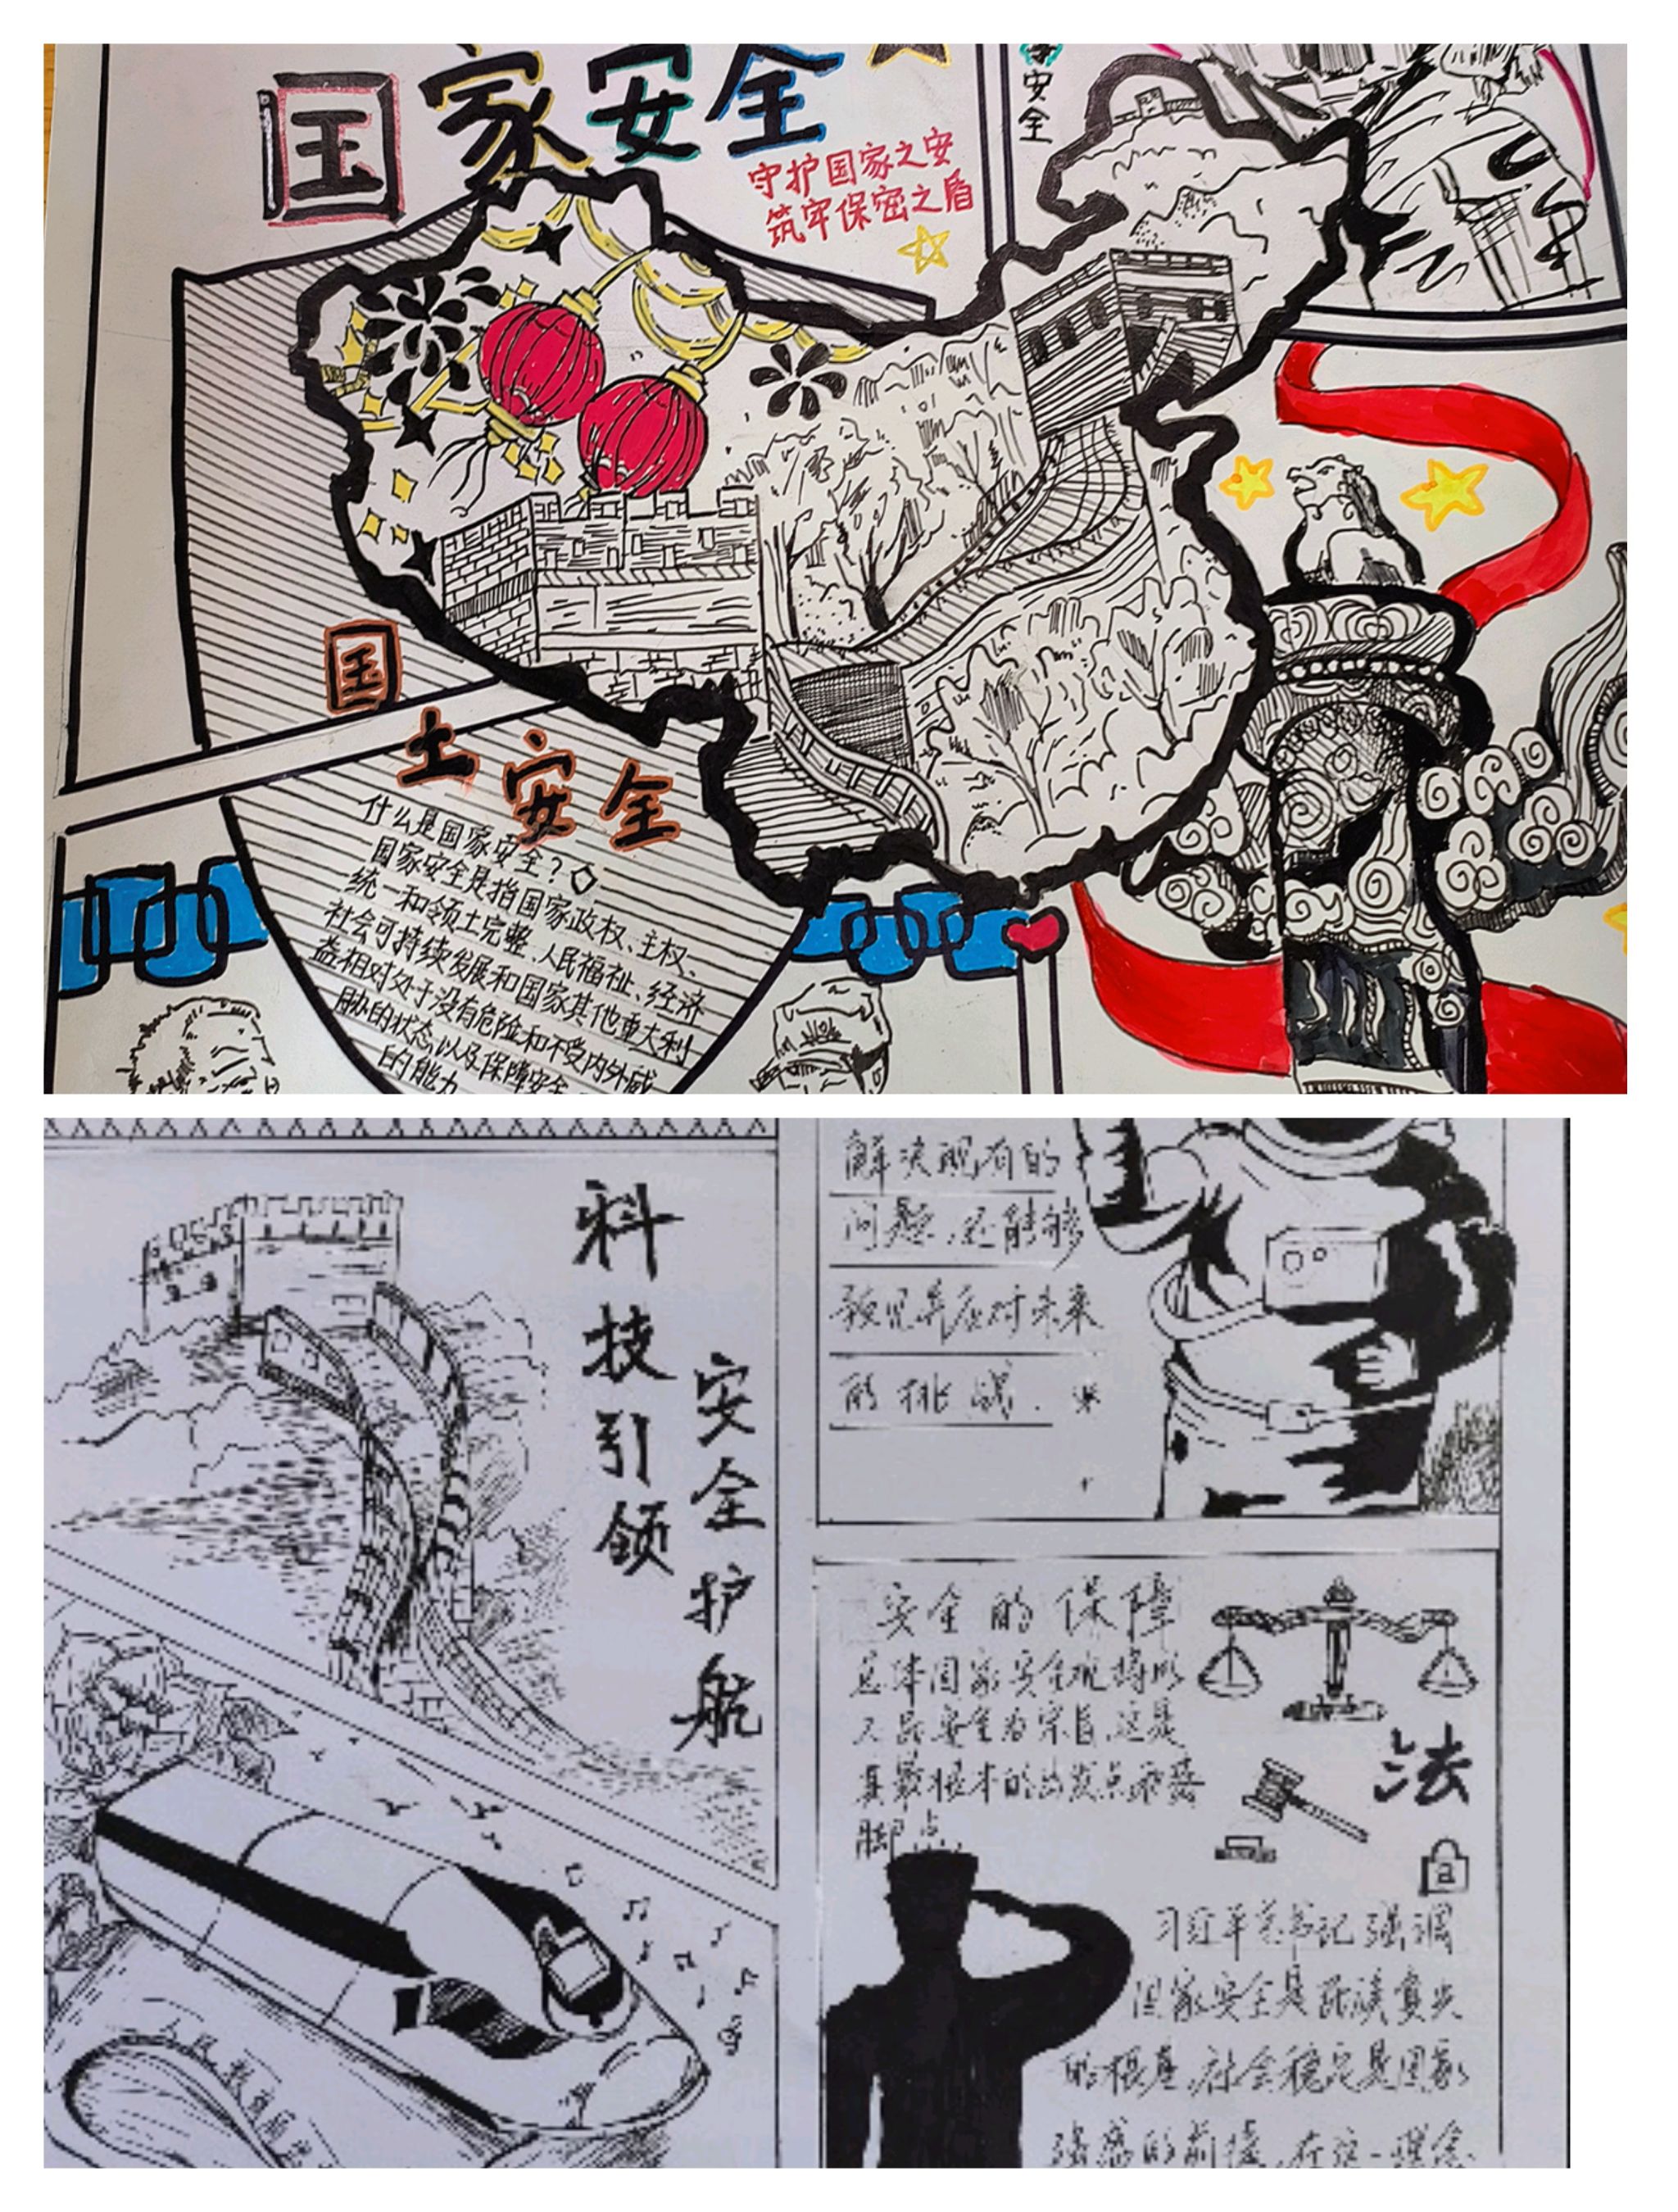 国家安全
守护国家之安
筑牢保密之盾
安全
国土安全
什么是国家安全？
国家安全是指国家政权、主权、
统一和领土完整、人民福祉、经济
社会可持续发展和国家其他重大利
益相对处于没有危险和不受内外威
胁的状态,以及保障安全
的能力
科技引领
安全护航
解决现有的
问题,还能够
预见并应对未来
的挑战.
安全的保障
总体国家安全观将以
人民安全为宗旨,这是
其最根本的出发点和落
脚点.
法
习近平总书记强调
国家安全是民族复兴
的根基,社会稳定是国家
强盛的前提,在这一理念